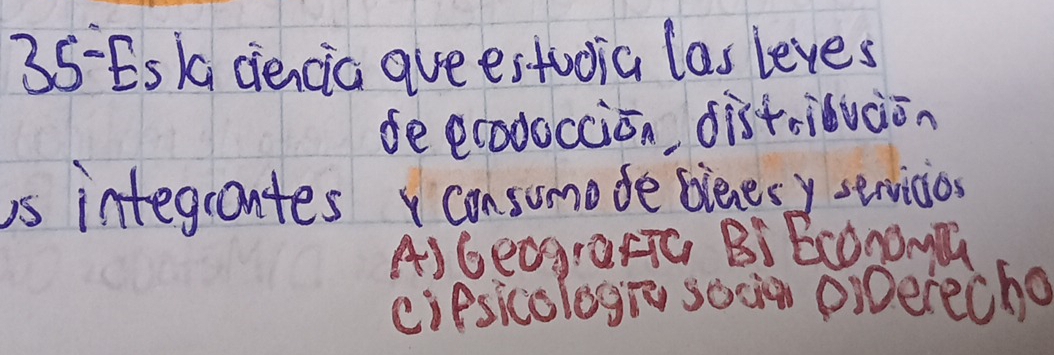 35-Es la ciencia que estudia las leyes
de producción, distribución
us integrantes y consumo de bienes y servicios
A) Geografía B) Economía
C) Psicología social D) Derecho